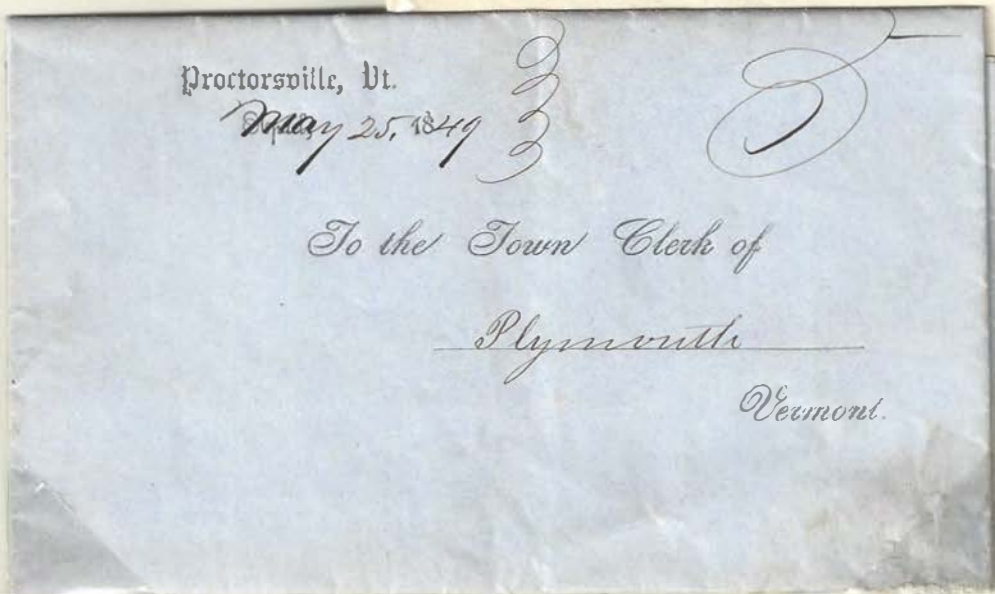 Proctorsville, Vt.
May 25, 1849
5
To the Town Clerk of
Plymouth
Vermont.